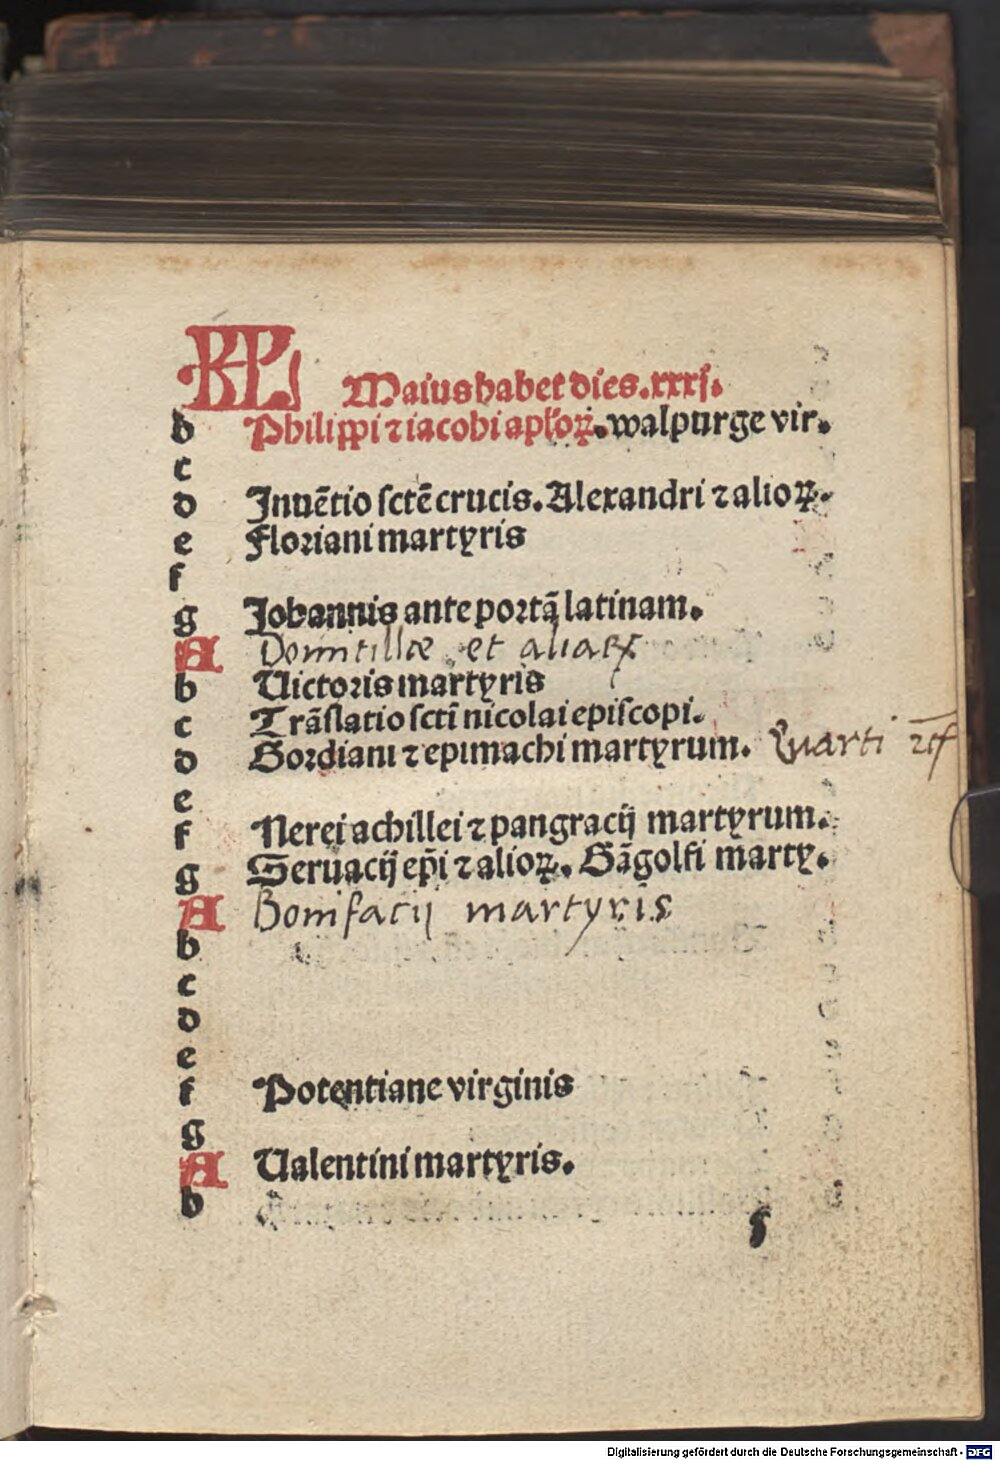 KL Maius habet dies .xxxj.
b Philippi ⁊ iacobi apłoꝝ. walpurge vir.
c
d Inuētio sctē crucis. Alexandri ⁊ alioꝝ.
e Floriani martyris
f
g Johannis ante portā latinam.
A Domitillæ et aliaꝝ
b Uictoris martyris
c Trāslatio scti nicolai episcopi.
d Gordiani ⁊ epimachi martyrum. Quarti
e
f Nerei achillei ⁊ pangracij martyrum.
g Seruacij ep̄i ⁊ alioꝝ. Gāgolfi marty.
A Bonifacij martyris
b
c
d
e
f Potentiane virginis
g
A Ualentini martyris.
b
Digitalisierung gefördert durch die Deutsche Forschungsgemeinschaft - DFG